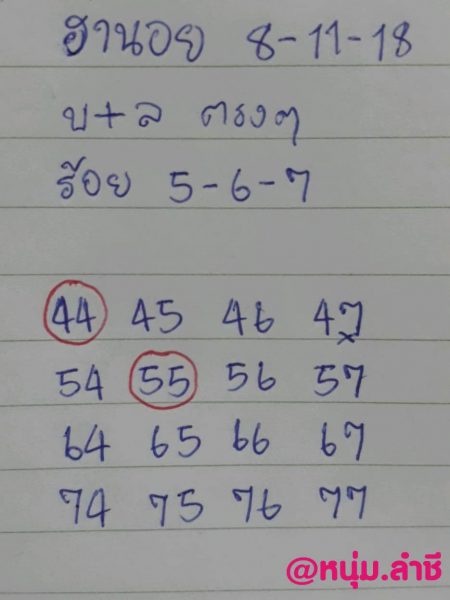 ฮานอย 8-11-18
บ+ล ตรงๆ
ร้อย 5-6-7
44 45 46 47
54 55 56 57
64 65 66 67
74 75 76 77
@หนุ่ม.ลำชี